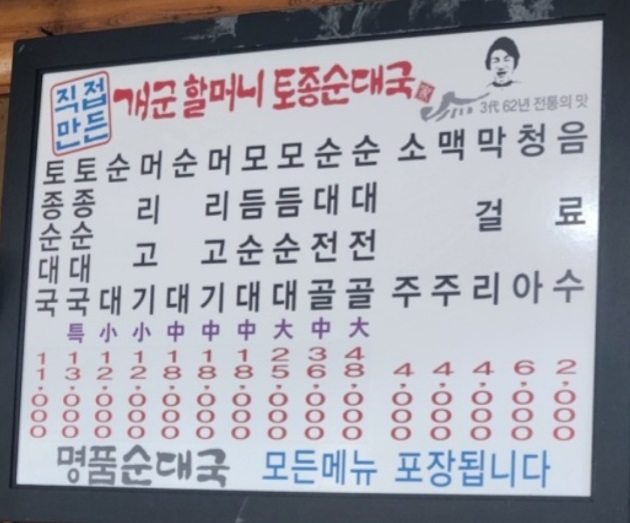 직접
만든
개군 할머니 토종순대국
3代 62년 전통의 맛
토종순대국 11,000
토종순대국 특 13,000
순대 小 12,000
머리고기 小 12,000
순대 中 18,000
머리고기 中 18,000
모듬순대 中 18,000
모듬순대 大 25,000
순대전골 中 36,000
순대전골 大 48,000
소주 4,000
맥주 4,000
막걸리 4,000
청아 6,000
음료수 2,000
명품순대국 모든메뉴 포장됩니다